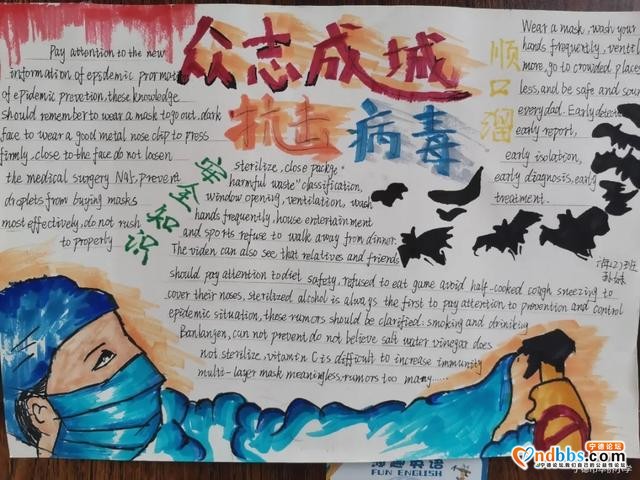 众志成城
抗击病毒
Pay attention to the new
information of epsdemic prormotion
of epidemic prevetion, these knowledge
should remember to wear a mask to go out, dark
face to wear a good metal nose chip to press
firmly, close to the face do not loosen
the medical surgery N95, prevent
droplets from buying masks
most effectively, do not rush
to properly
安全知识
sterilize, close packge
"harmful waste" classification,
window opening, ventilation, wash
hands frequently, house entertainment
and sports refuse to walk away from dinner.
The viden can also see that relatives and friends
should pay attention to diet safety, refused to eat game avoid half-cooked cough sneezing to
cover their noses, sterilized alcohol is always the first to pay attention to prevention and control
epidemic situation, these rumors should be clarified: smoking and driniking
Banlangen, can not prevent do not believe salt water vinegar does
not sterilize, vitamin C is difficult to increase immunity
multi-layer mask meaningless, rumors too many......
顺口溜
Wear a mask, wash your
hands frequently, ventil
more, go to crowded places
less, and be safe and soun
everyday. Early detecte
early report,
early isolation,
early diagnosis, early
treatment.
班
英语
FUN ENGLISH
宁德论坛
ndbbs.com